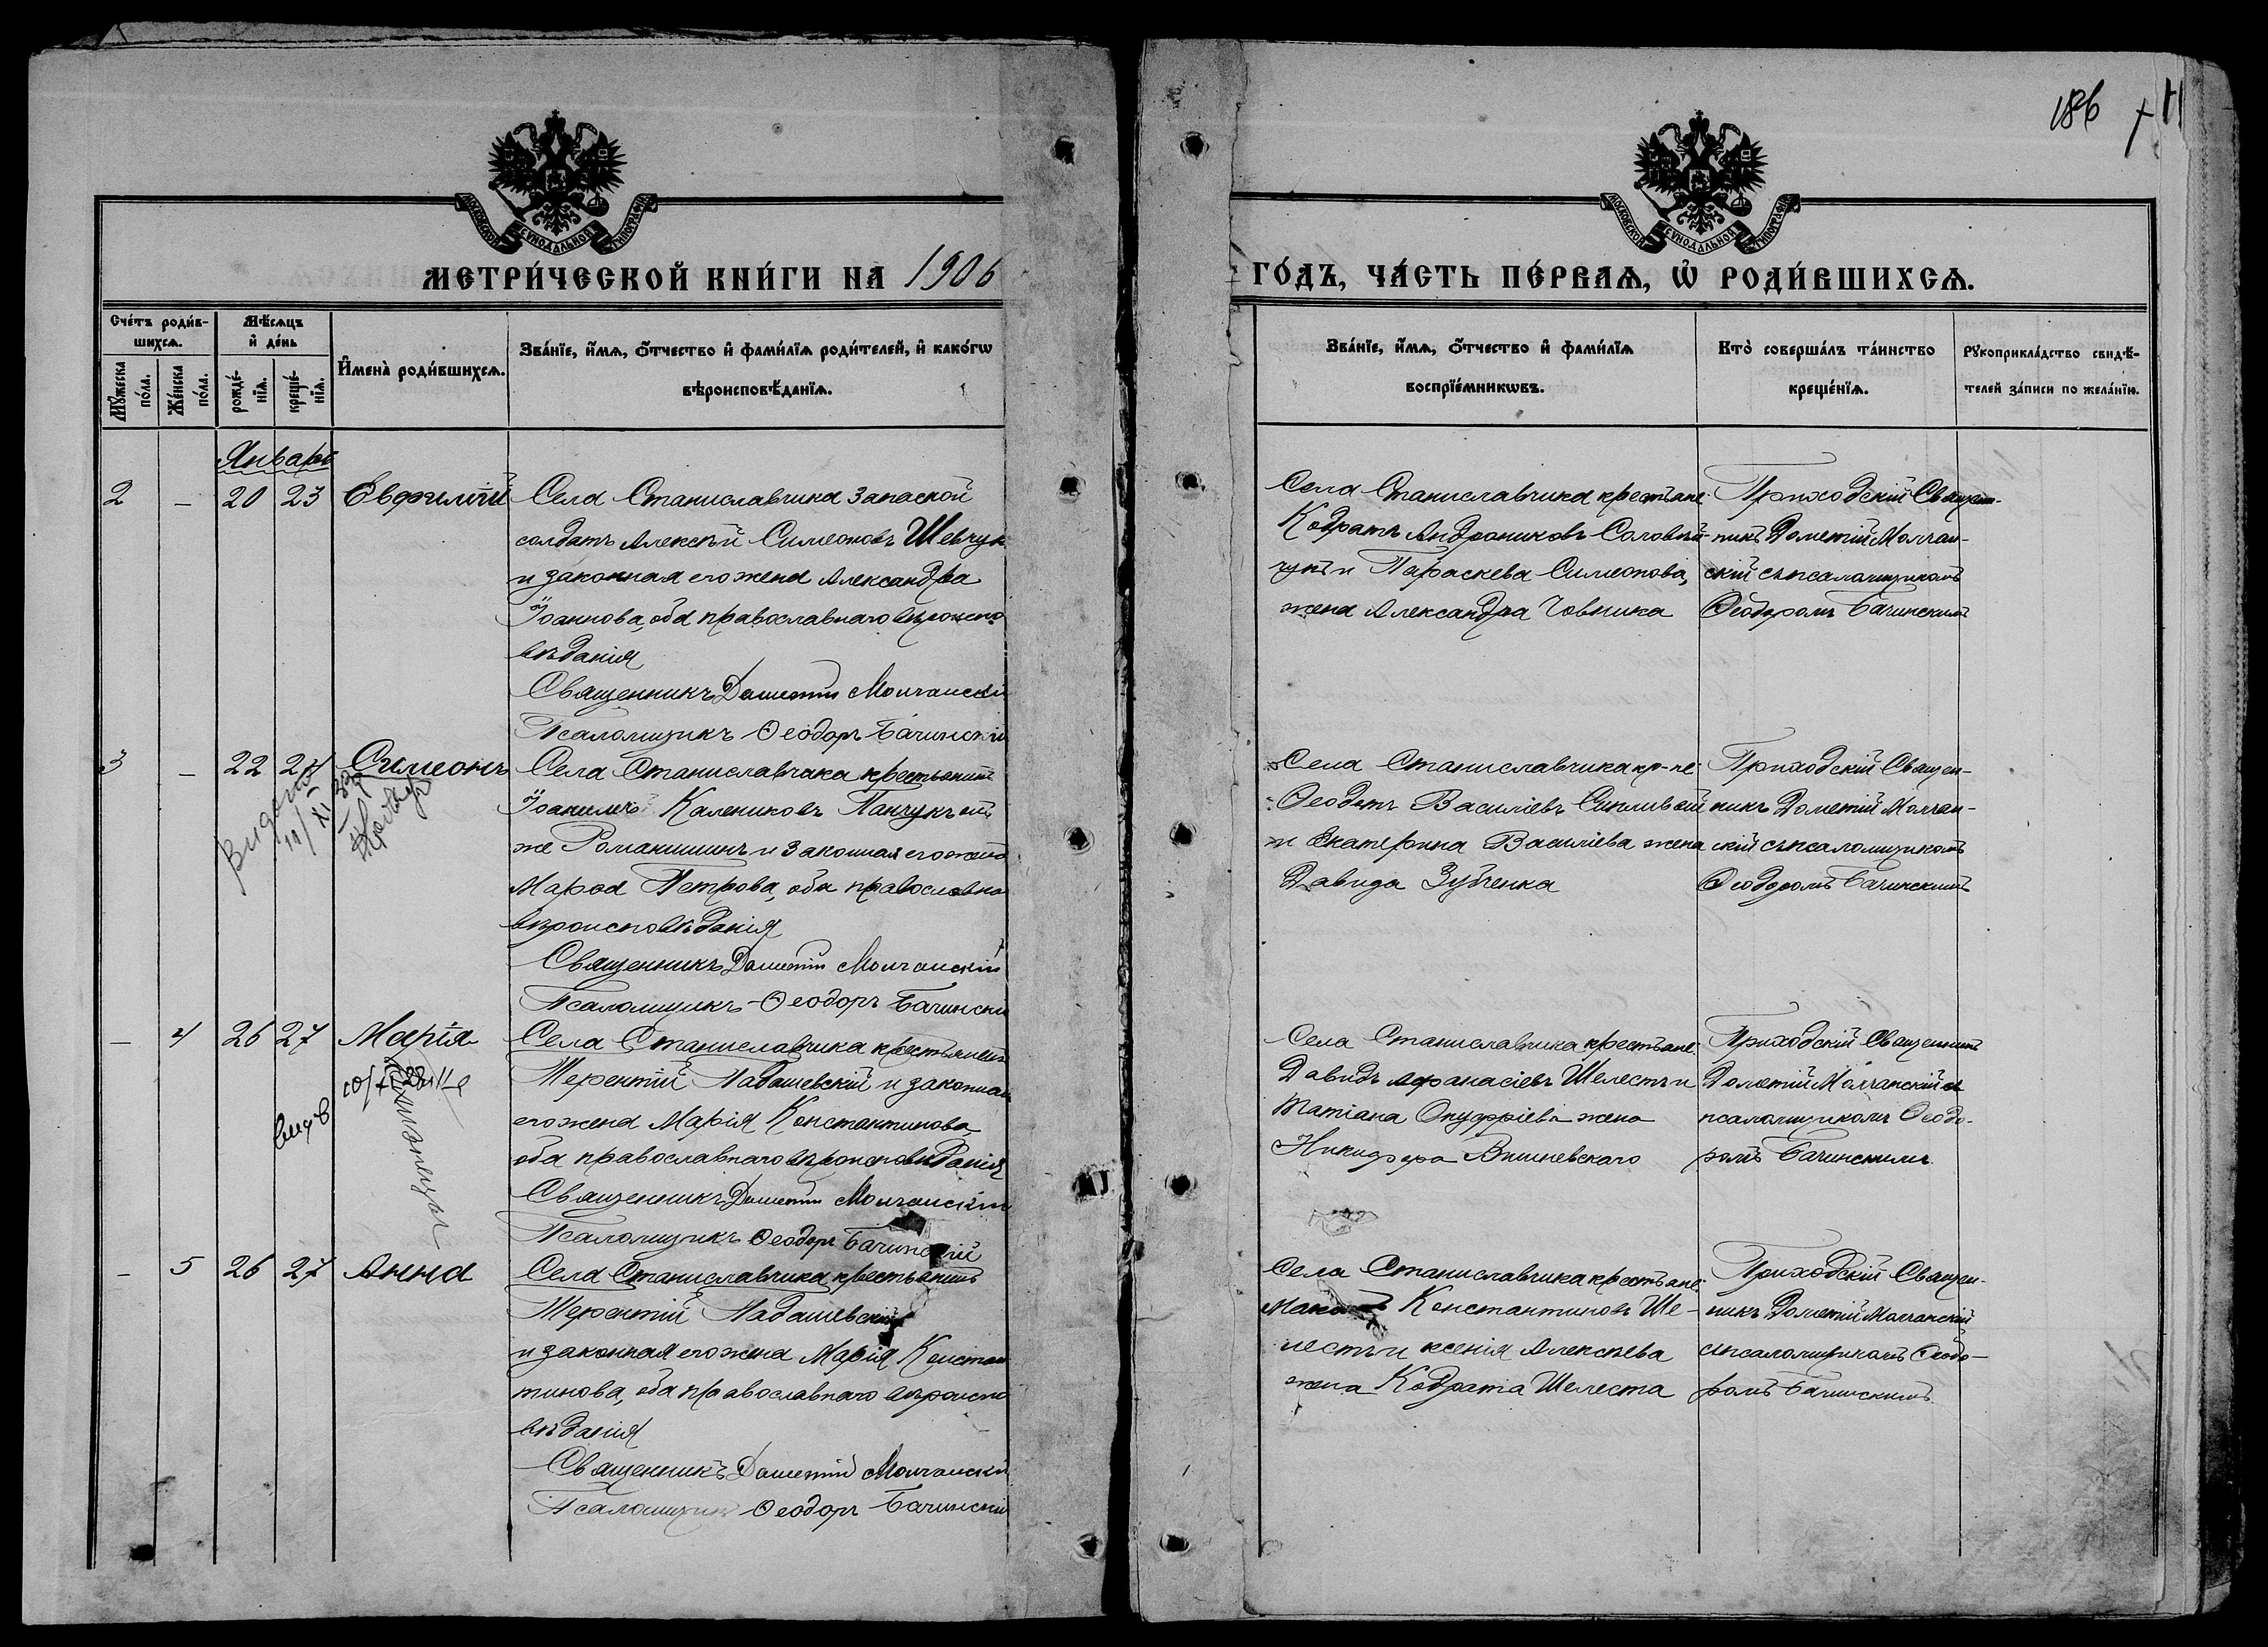 186
МОСКОВСКОЙ СѴНОДАЛЬНОЙ ТИПОГРАФІИ
МОСКОВСКОЙ СѴНОДАЛЬНОЙ ТИПОГРАФІИ
МЕТРИ́ЧЕСКОЙ КНИ́ГИ НА 1906
ГО́ДЪ, ЧА́СТЬ ПЕ́РВАѦ, Ѡ҆ РОДИ́ВШИХСѦ.
Сче́тъ роди́в-
шихсѧ.
Мꙋ́жеска по́ла.
Же́нска по́ла.
Мѣ́сѧцъ
и҆ де́нь
рожде́-
нїѧ.
креще́-
нїѧ.
И҆мена̀ роди́вшихсѧ.
Зва́нїе, и҆́мѧ, ѻ҆́тчество и҆ фами́лїѧ роди́телей, и҆ како́гѡ
вѣроисповѣ́данїѧ.
Зва́нїе, и҆́мѧ, ѻ҆́тчество и҆ фами́лїѧ
воспрїе́мникѡвъ.
Кто̀ соверша́лъ та́инство
креще́нїѧ.
Рꙋкоприкла́дство свидѣ́-
телей за́писи по жела́нїю.
Январь
2 - 20 23 Евфимій
Села Станиславчика запасной
солдатъ Алексѣй Симеоновъ Шевчук
и законная его жена Александра
Іоаннова, оба православнаго вѣроиспо
вѣданія
Священникъ Дометій Молчанскій
Псаломщикъ Ѳеодоръ Бачинскій
Села Станиславчика крестьяне:
Кодратъ Андрониковъ Соловей-
чукъ и Параскева Симеонова,
жена Александра Човника
Приходскій Священ-
никъ Дометій Молчан-
скій съ псаломщикомъ
Ѳеодоромъ Бачинскимъ
3 - 22 24 Симеонъ
Видано
10/XI 39
Села Станиславчика крестьянинъ
Іоакимъ Калениковъ Панчукъ онъ
же Романишинъ и законная его жена
Марѳа Петрова, оба православна
вѣроисповѣданія
Священникъ Дометій Молчанскій
Псаломщикъ Ѳеодоръ Бачински
Села Станиславчика кр-не:
Ѳеодотъ Василіевъ Сипливый
и Екатерина Василіева жена
Давида Зубченка
Приходскій Священ-
никъ Дометій Молчан-
скій съ псаломщикомъ
Ѳеодоромъ Бачинскимъ
- 4 26 27 Марія
Села Станиславчика крестьянинъ
Терентій Ладашевскій и законная
его жена Марія Константинова
оба православнаго вѣроисповѣданія
Священникъ Дометій Молчанскій
Псаломщикъ Ѳеодоръ Бачинскій
Села Станиславчика крестьяне:
Давидъ Афанасіевъ Шелестъ и
Татіана Онуфріева жена
Никифора Вишневскаго
Приходскій Священникъ
Дометій Молчанскій съ
псаломщикомъ Ѳеодо-
ромъ Бачинскимъ
- 5 26 27 Анна
Села Станиславчика крестьянинъ
Терентій Ладашевскій
и законная его жена Марія Констан
тинова, оба православнаго вѣроиспо
вѣданія
Священникъ Дометій Молчанскій
Псаломщикъ Ѳеодоръ Бачинскій
Села Станиславчика крестьяне:
Константиновъ Ше-
лестъ и Ксенія Алексѣева
жена Кодрата Шелеста
Приходскій Священ-
никъ Дометій Молчанскій
съ псаломщикомъ Ѳеодо-
ромъ Бачинскимъ